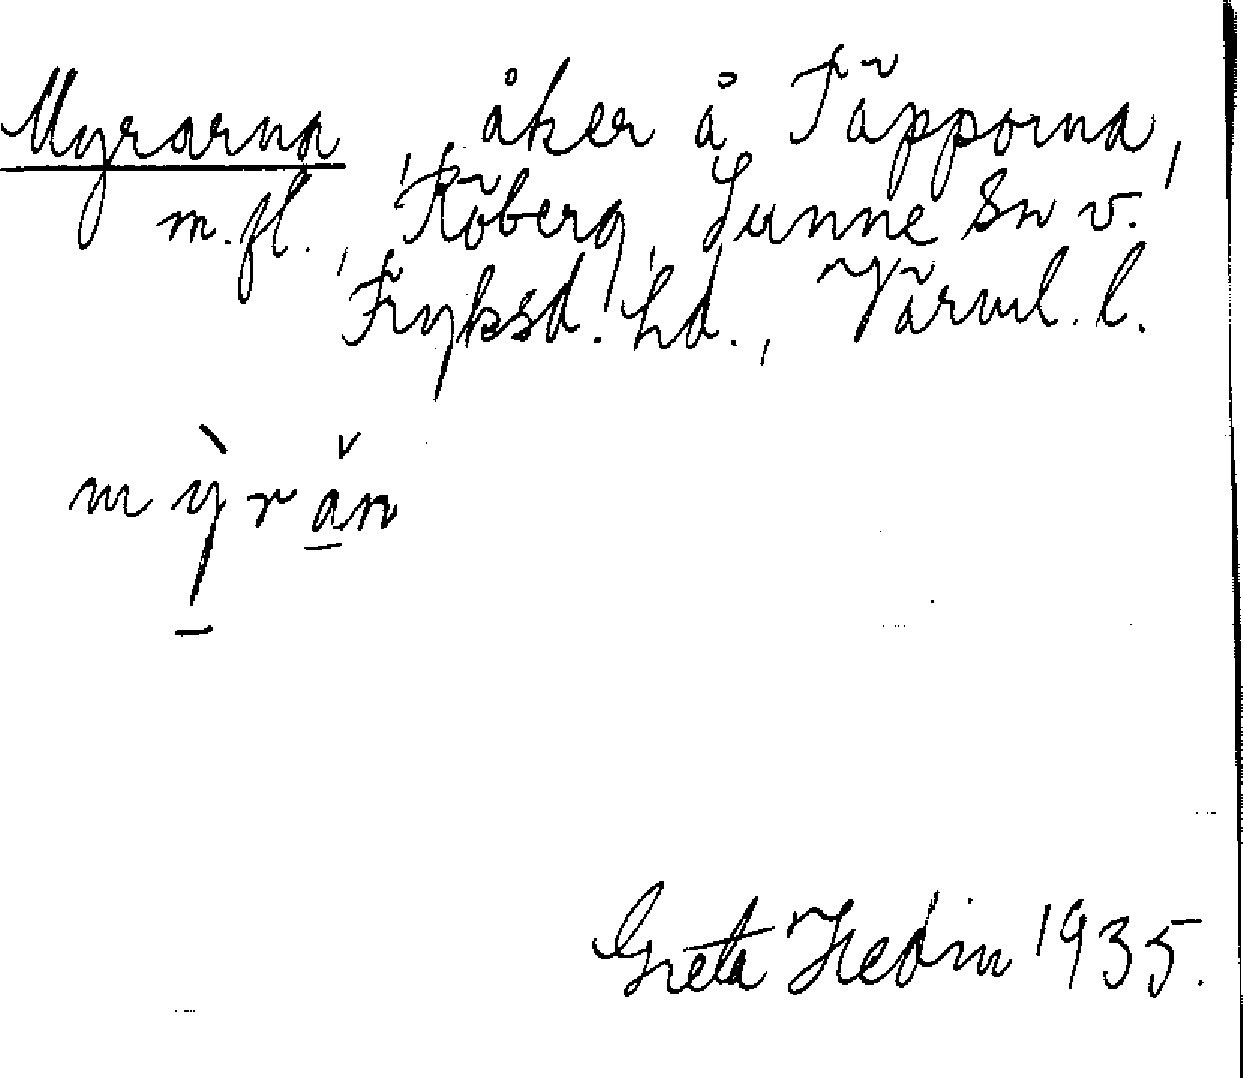 Myrarna, åker å Täpporna,
m.fl., Röberg, Sunne Sn v.
Fryksd. hd., Värml. l.
mỳrån
Greta Hedin 1935.